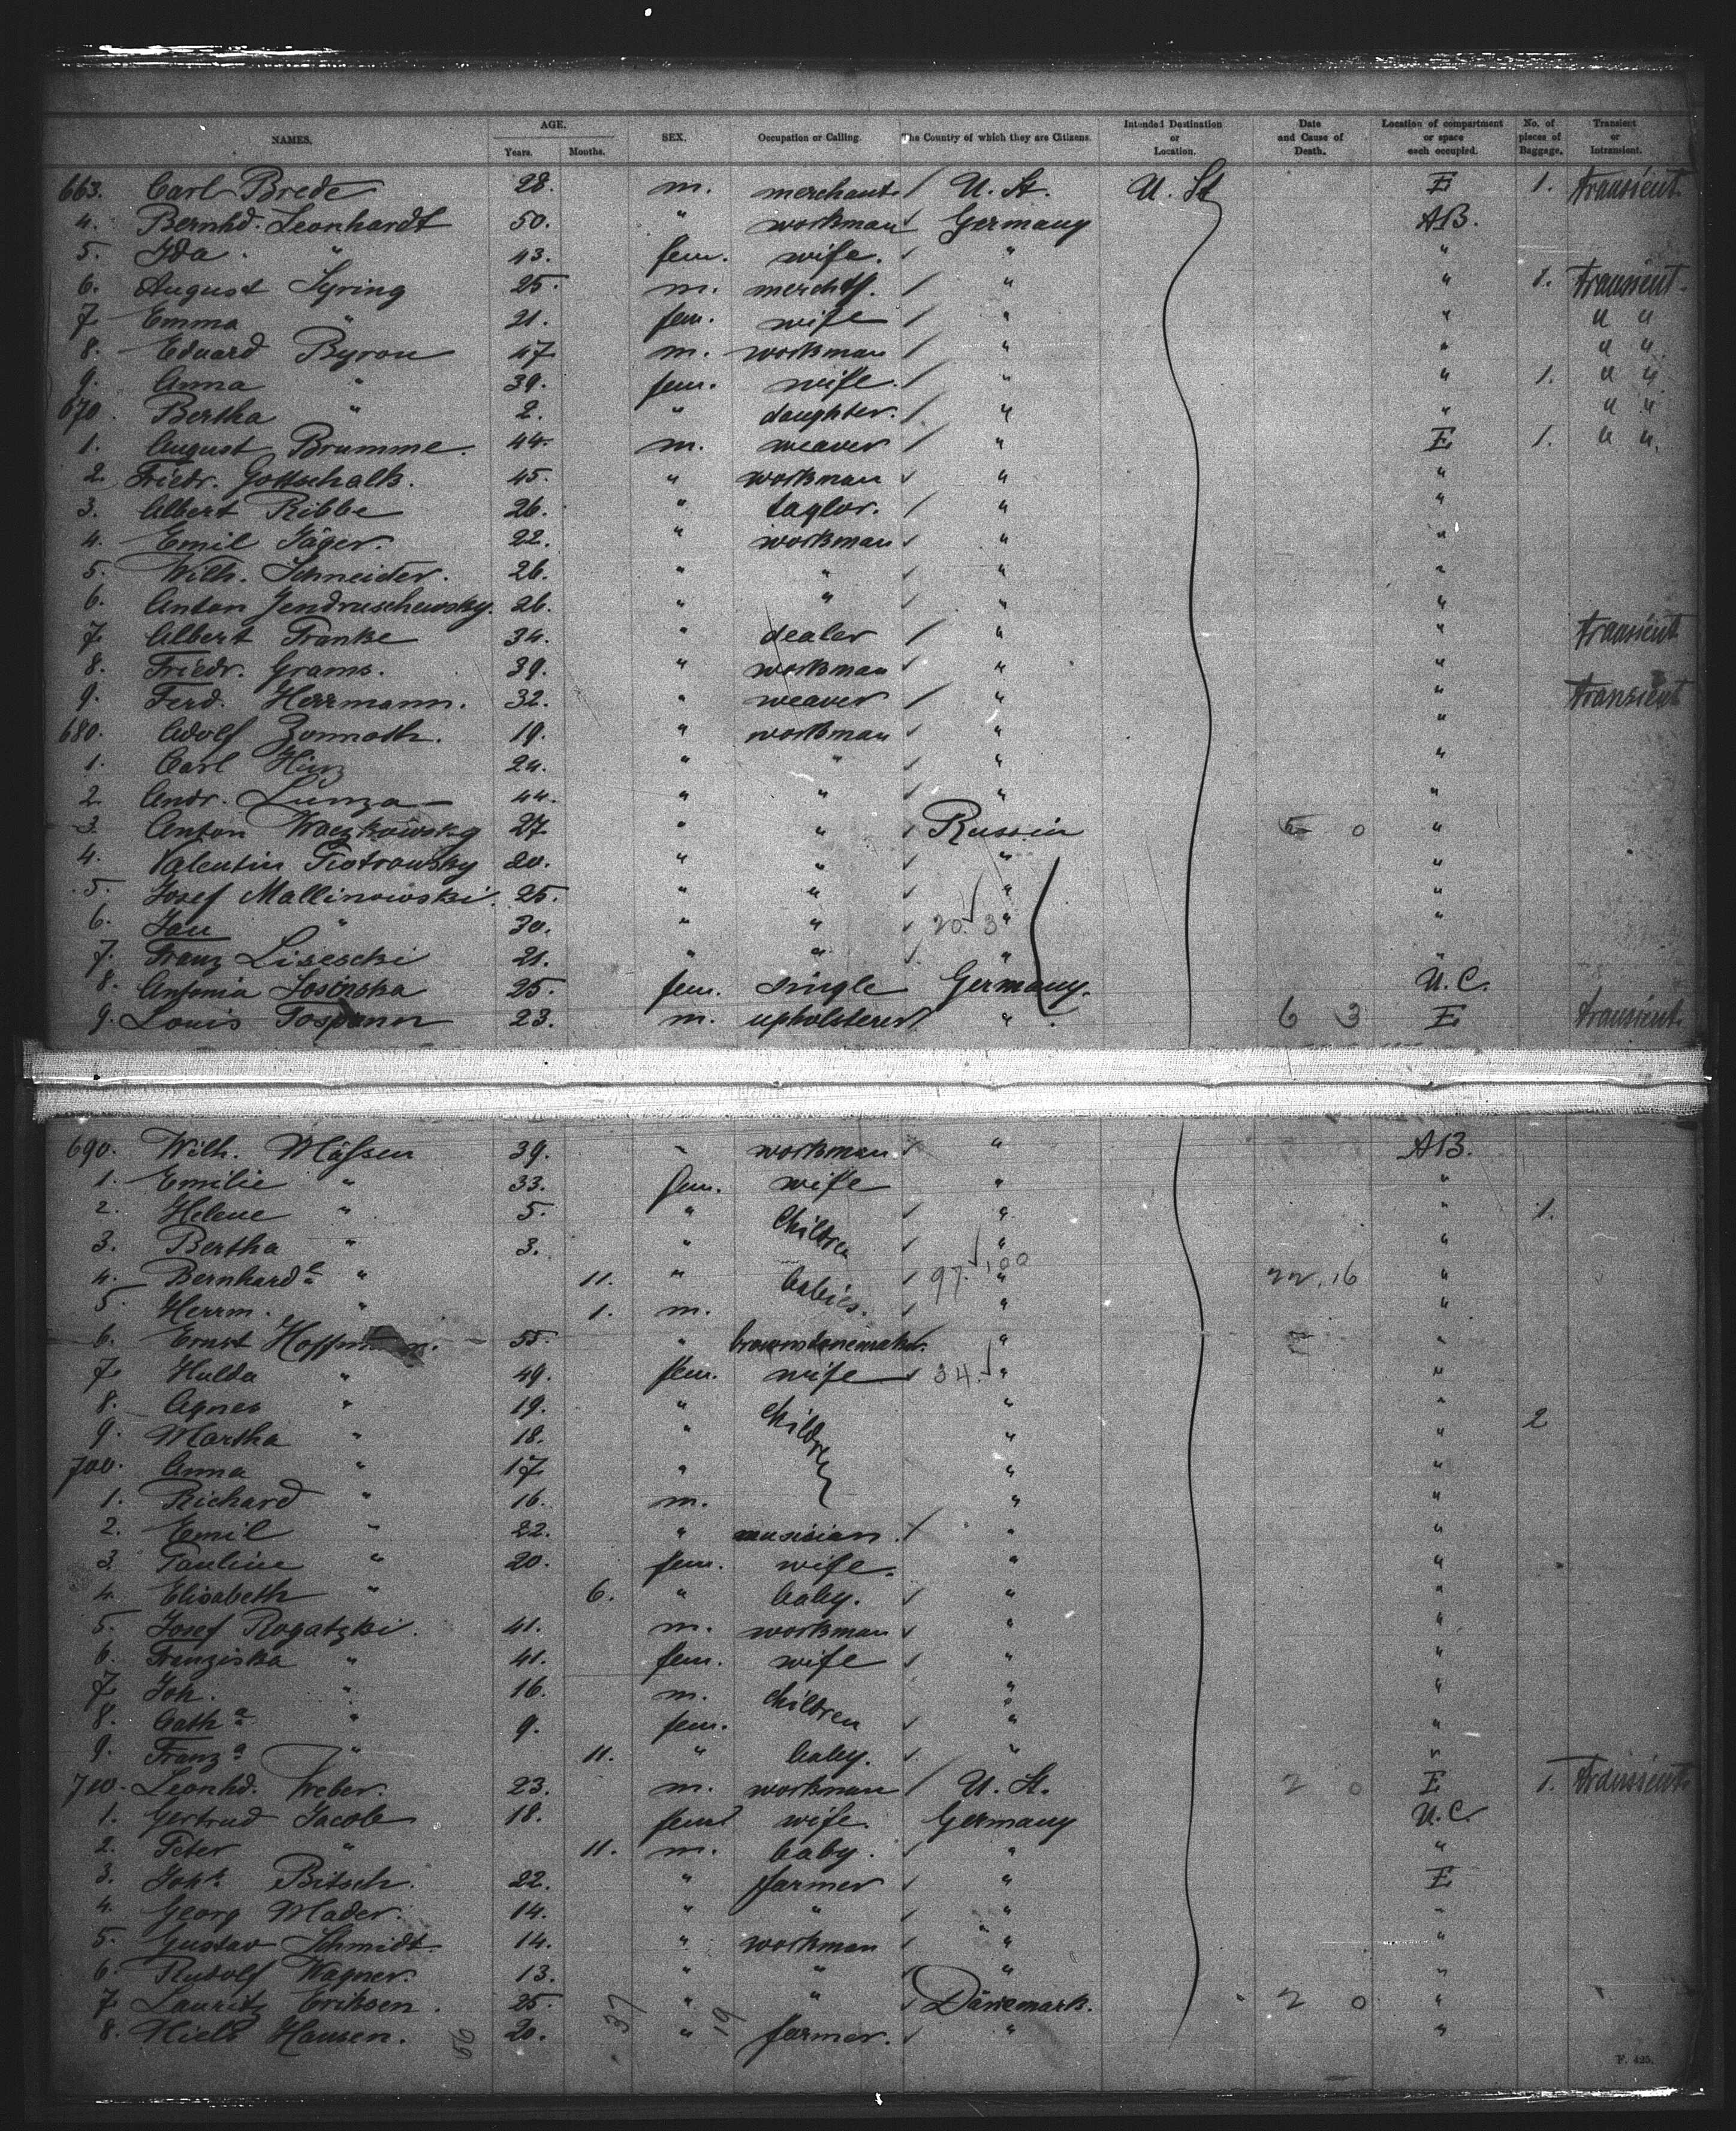 NAMES. AGE. Years. Months. SEX. Occupation or Calling. The Country of which they are Citizens. Intended Destination or Location. Date and Cause of Death. Location of compartment or space each occupied. No. of pieces of Baggage. Transient or Intransient.
663. Carl Brede 28. m. merchant / U. St. U. St E 1. transient
4. Bernhd. Leonhardt 50. " workman ✓ Germany AB.
5. Ida. " 43. fem. wife. ✓ " "
6. August Syring 25. m. merchtt. / " " 1. transient.
7. Emma " 21. fem. wife / " " " "
8. Eduard Byron 47. m. workman / " " " "
9. Anna " 39. fem. wife. / " " 1. " "
670. Bertha " 2. " daughter. / " " " "
1. August Brumme. 44. m. weaver / " E 1. " "
2. Friedr. Gottschalk. 45. " workman ✓ " "
3. Albert Ribbe 26. " taylor. / " "
4. Emil Jäger. 22. " workman ✓ " "
5. Wilh. Schneider. 26. " " ✓ " "
6. Anton Jendruschewsky. 26. " " ✓ " "
7. Albert Franke 34. " dealer / " " transient
8. Friedr. Grams. 39. " workman ✓ " "
9. Ferd. Herrmann. 32. " weaver / " " transient
680. Adolf Zonnoth. 19. " workman " "
1. Carl Hinz 24. " " ✓ " "
2. Andr. Lunza 44. " " ✓ " "
3. Anton 27. " " ✓ Russia 5 0 "
4. Valentin Piotrowsky 20. " " ✓ " "
5. Josef Mallinowski. 25. " " ✓ " "
6. Jan " 30. " " ✓ 20. 3 " "
7. Franz Lisescki 21. " " ✓ " "
8. Antonia Josinska 25. fem. single Germany. U. C.
9. Louis 23. m. upholsterer / " 6 3 E transient.
690. Wilh. Mäßen 39. " workman ✓ " AB.
1. Emilie " 33. fem. wife " "
2. Helene " 5. " Children ✓ " " 1.
3. Bertha " 3. " ✓ " "
4. Bernharde " 11. " babies. ✓ 97. 100 " 22. 16 "
5. Herrm. " 1. m. ✓ " "
6. Ernst Hoffmann. 55. " " "
7. Hulda " 49. fem. wife ✓ 34. " "
8. Agnes " 19. " Children " " 2
9. Martha " 18. " " "
700. Anna " 17. " " "
1. Richard " 16. m. " "
2. Emil " 22. " musician. / " "
3. Pauline " 20. fem. wife. " "
4. Elisabeth " 6. " baby. ✓ " "
5. Josef Rogatzki. 41. m. workman ✓ " "
6. Franziska " 41. fem. wife ✓ " "
7. Joh. " 16. m. Children " "
8. Cath a " 9. fem. ✓ " "
9. Franz a " 11. " baby. ✓ " "
710. Leonhd. Weber. 23. m. workman / U. St. 2 0 E 1. transient.
1. Gertrud Jacob 18. fem wife. Germany U. C.
2. Peter " 11. m. baby. ✓ " "
3. Joh. Bitsch. 22. " farmer ✓ " E
4. Georg Mader. 14. " " ✓ " "
5. Gustav Schmidt. 14. " workman ✓ " "
6. Rudolf Wagner. 13. " " ✓ " "
7. Lauritz Eriksen. 25. " " ✓ Dänemark. 2 0 "
8. Niels Hansen. 56 20. 37 " 19 farmer. ✓ " "
F. 425.